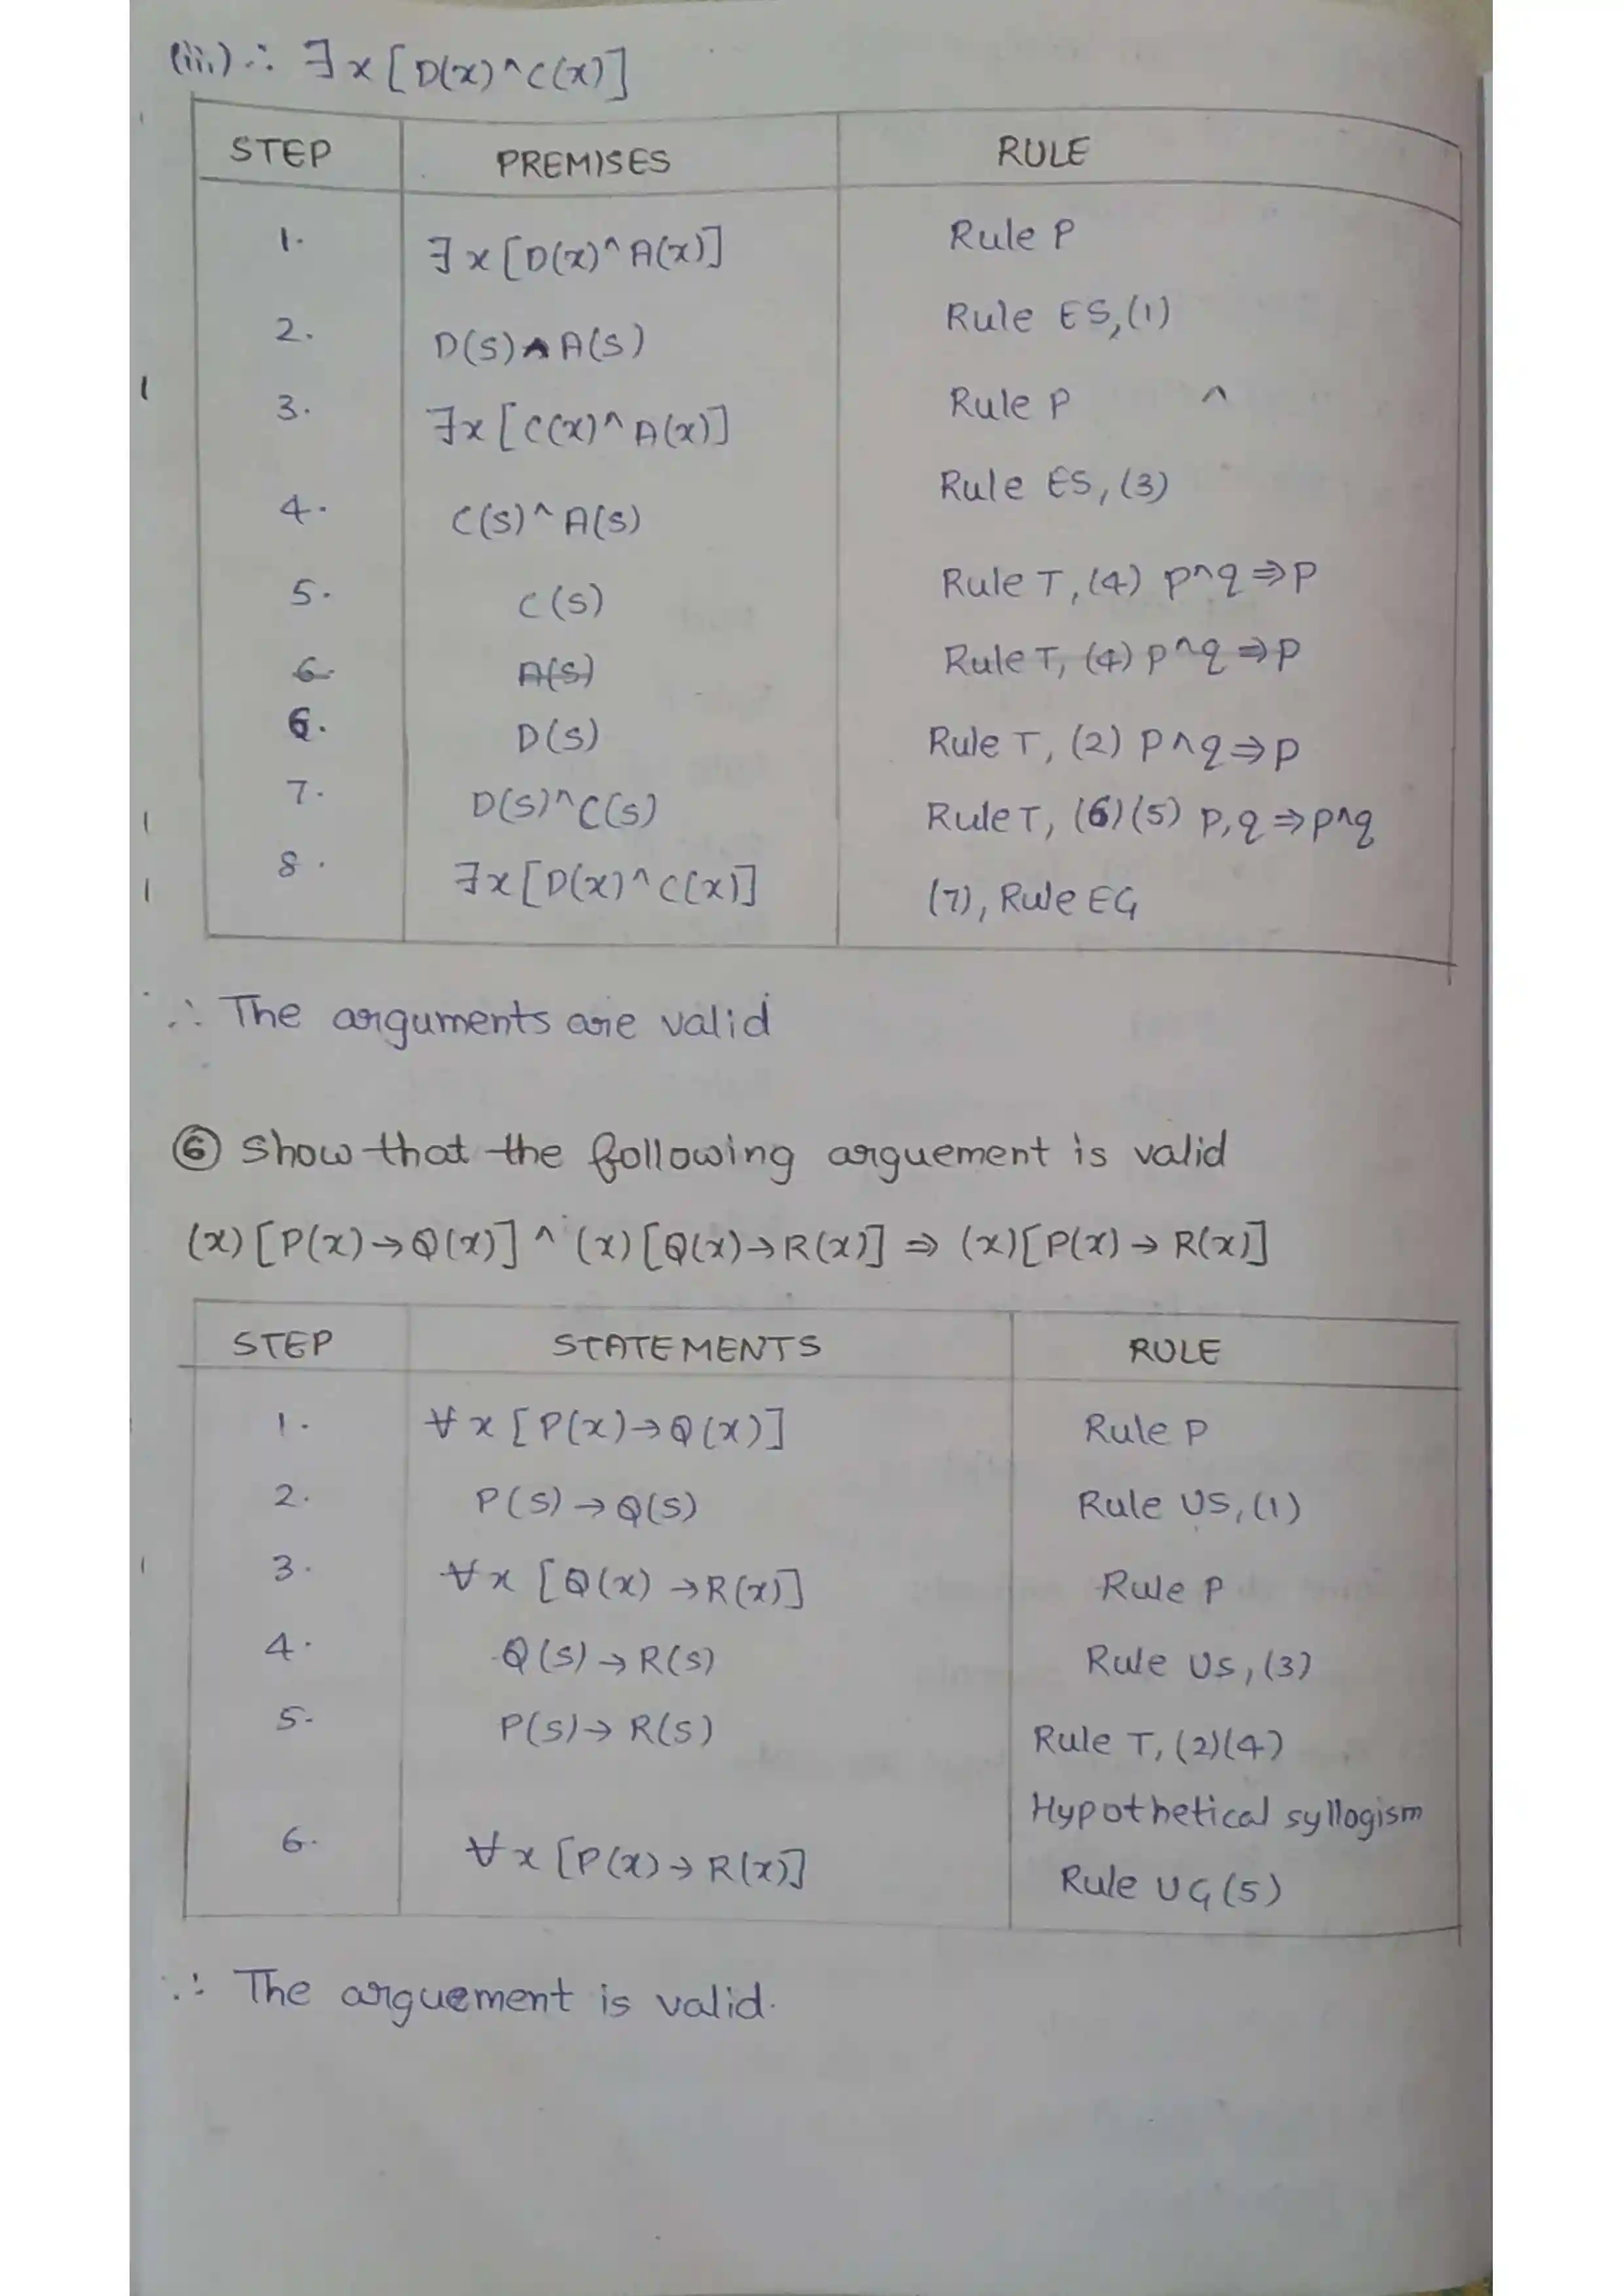 (iii) ∴ ∃x[D(x)^C(x)]
STEP PREMISES RULE
1. ∃x[D(x)^A(x)] Rule P
2. D(s)^A(s) Rule ES,(1)
3. ∃x[C(x)^A(x)] Rule P ^
4. C(s)^A(s) Rule ES,(3)
5. C(s) Rule T,(4) p^q⇒p
6. A(s) Rule T,(4) p^q⇒p
6. D(s) Rule T,(2) p^q⇒p
7. D(s)^C(s) Rule T,(6)(5) p,q⇒p^q
8. ∃x[D(x)^C(x)] (7), Rule EG
∴ The arguments are valid
⑥ Show that the following arguement is valid
(x)[P(x)→Q(x)] ^ (x)[Q(x)→R(x)] ⇒ (x)[P(x)→R(x)]
STEP STATEMENTS RULE
1. ∀x[P(x)→Q(x)] Rule P
2. P(s)→Q(s) Rule US,(1)
3. ∀x[Q(x)→R(x)] Rule P
4. Q(s)→R(s) Rule US,(3)
5. P(s)→R(s) Rule T,(2)(4)
Hypothetical syllogism
6. ∀x[P(x)→R(x)] Rule UG(5)
∴ The arguement is valid.